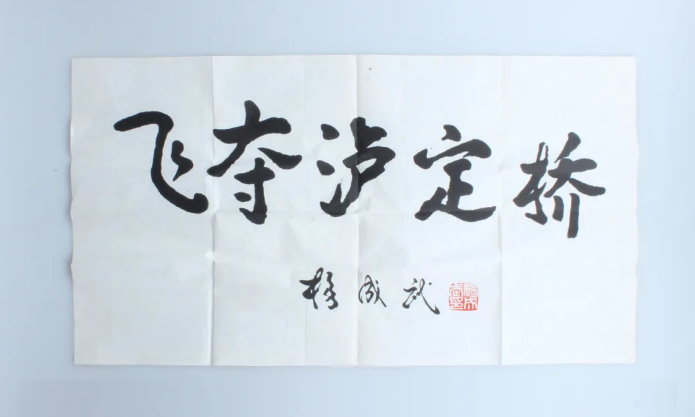 飞夺泸定桥
杨成武